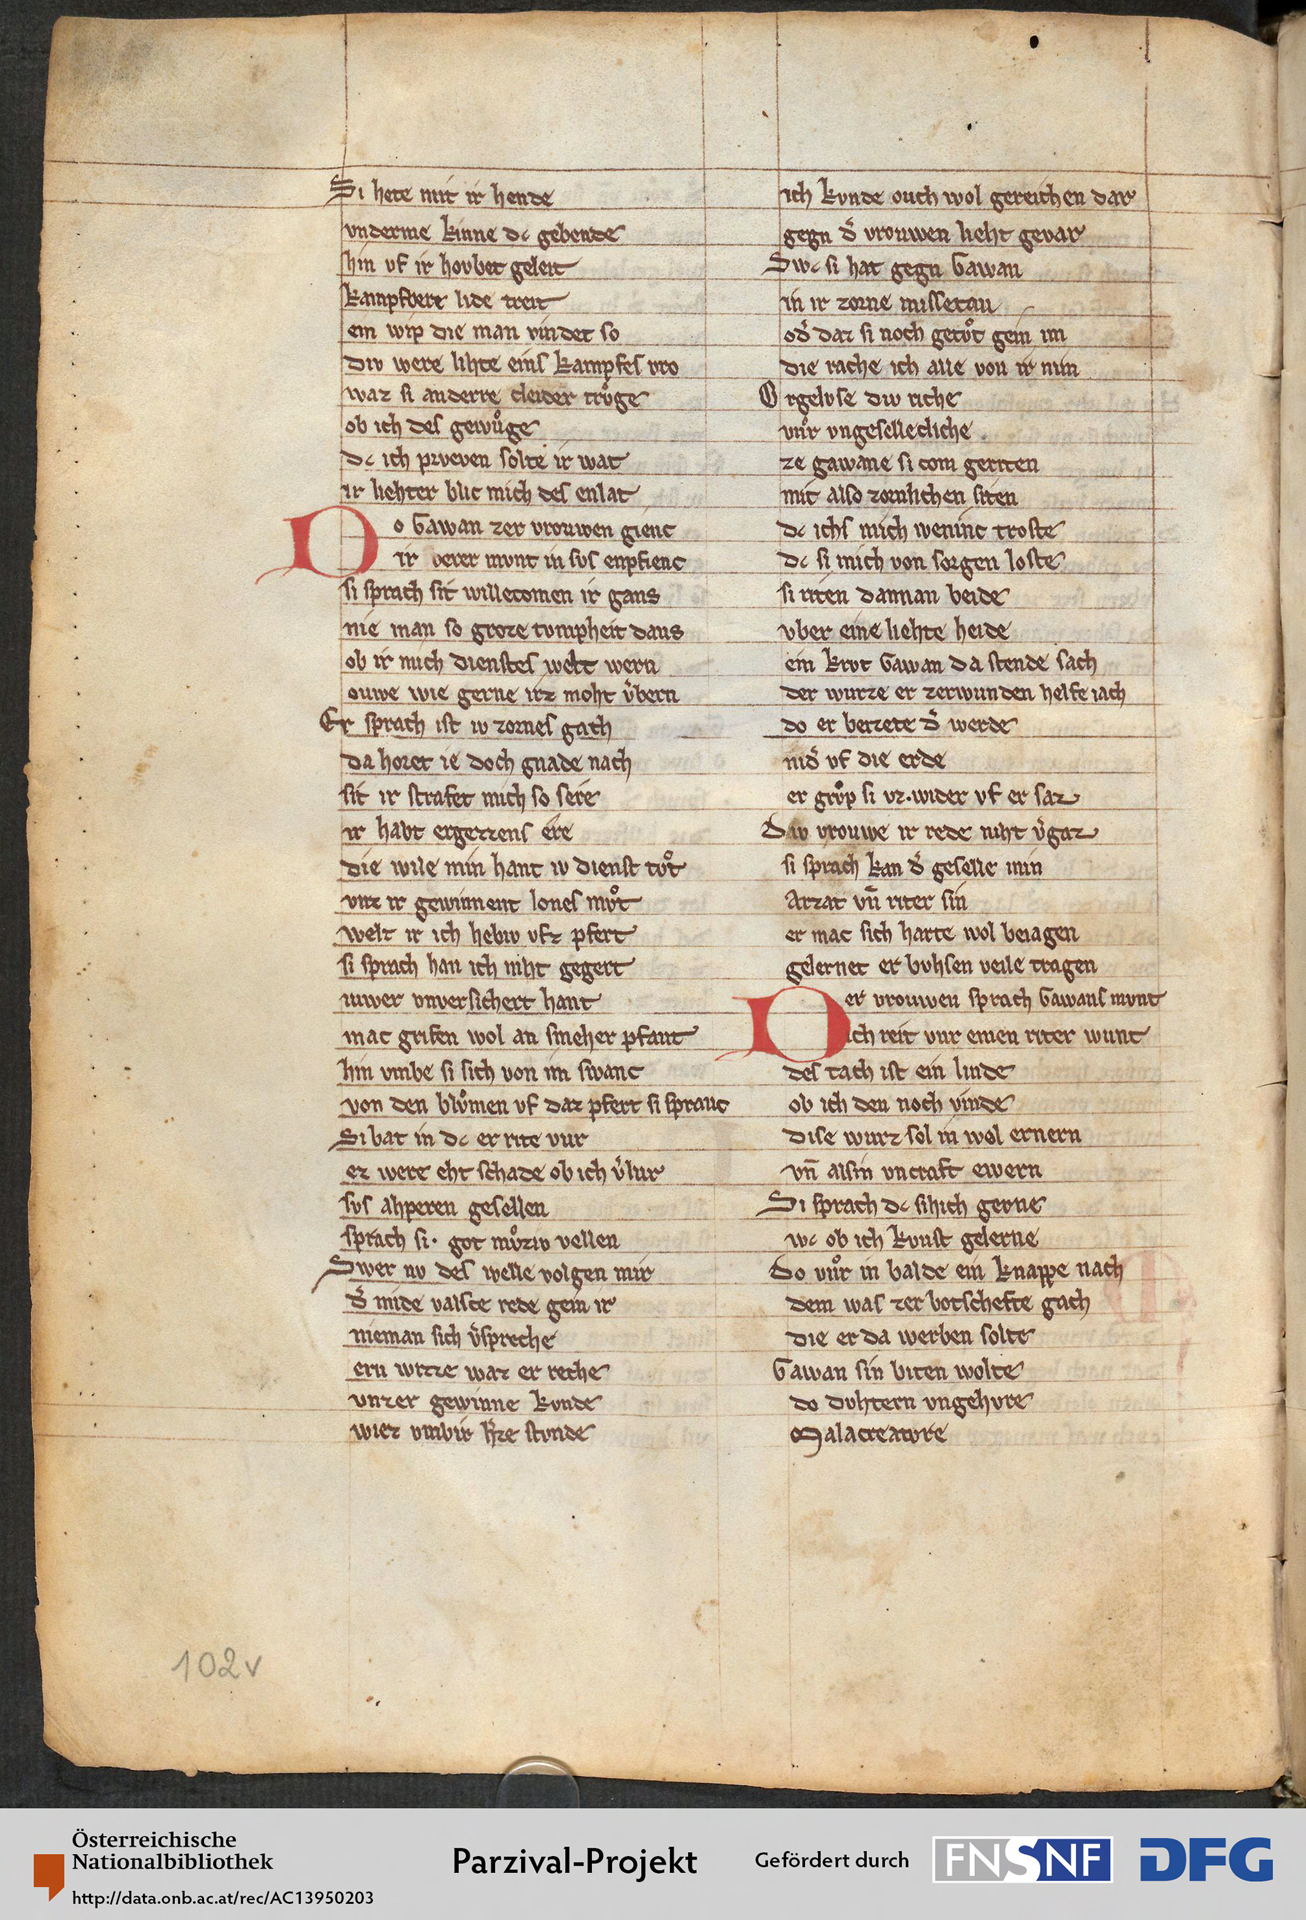 Si hete mit ir hende
vnderme kinne dc gebende
hin vf ir hovbet geleit
kampfbere lide treit
ein wip die man vindet so
div were lihte eins kampfes vro
waz si anderre cleider trvͦge
ob ich des gewuͦge
dc ich prveven solte ir wat
ir liehter blic mich des enlat
Do Gawan zer vrouwen gienc
ir verer mvnt in svs enpfienc
si sprach sit willecomen ir gans
nie man so groze tvmpheit dans
ob ir mich dienstes welt wern
ouwe wie gerne irz moht v̓bern
Er sprach ist iv zornes gach
da horet ie doch gnade nach
sit ir strafet mich so sere
ir habt ergetzens ere
die wile min hant iv dienst tvͦt
vnz ir gewinnent lones mvͦt
welt ir ich hebiv vfz pfert
si sprach han ich niht gegert
iuwer vnversichert hant
mac grifen wol an smeher pfant
hin vmbe si sich von im swanc
von den blvͦmen vf daz pfert si spranc
Si bat in dc er rite vur
ez were eht schade ob ich v̓lur
svs ahperen gesellen
sprach si· got mvͦziv vellen
Swer nv des welle volgen mir
d̓ mide valste rede gein ir
nieman sich v̓spreche
ern wizze waz er reche
vnzer gewinne kvnde
wiez vmbir h̓ze stvnde
ich kvnde ouch wol gereichen dar
gegn d̓ vrouwen lieht gevar
Swc si hat gegn Gawan
in ir zorne missetan
od̓ daz si noch getvͦt gein im
die rache ich alle von ir nim
Orgelvse div riche
vuͦr vngesellecliche
ze gawane si com geriten
mit also zornlichen siten
dc ichs mich weninc troste
dc si mich von sorgen loste
si riten dannan beide
vber eine liehte heide
ein krvt Gawan da stende sach
der wurze er zerwunden helfe iach
do er beizete d̓ werde
nid̓ vf die erde
er grvͦp si vz·wider vf er saz
Div vrouwe ir rede niht v̓gaz
si sprach kan d̓ geselle min
Arzat vn̄ riter sin
er mac sich harte wol beiagen
gelernet er bvhsen veile tragen
Der vrouwen sprach Gawans mvnt
ich reit vur einen riter wunt
des tach ist ein linde
ob ich den noch vinde
dise wurz sol in wol ernern
vn̄ alsin vncraft ewern
Si sprach dc sihich gerne
wc ob ich kvnst gelerne
Do vuͦr in balde ein knappe nach
dem was zer botschefte gach
die er da werben solte
Gawan sin biten wolte
do dvhtern vngehvre
Malacreatvre
102v
Österreichische
Nationalbibliothek
http://data.onb.ac.at/rec/AC13950203
Parzival-Projekt
Gefördert durch
FNSNF
DFG